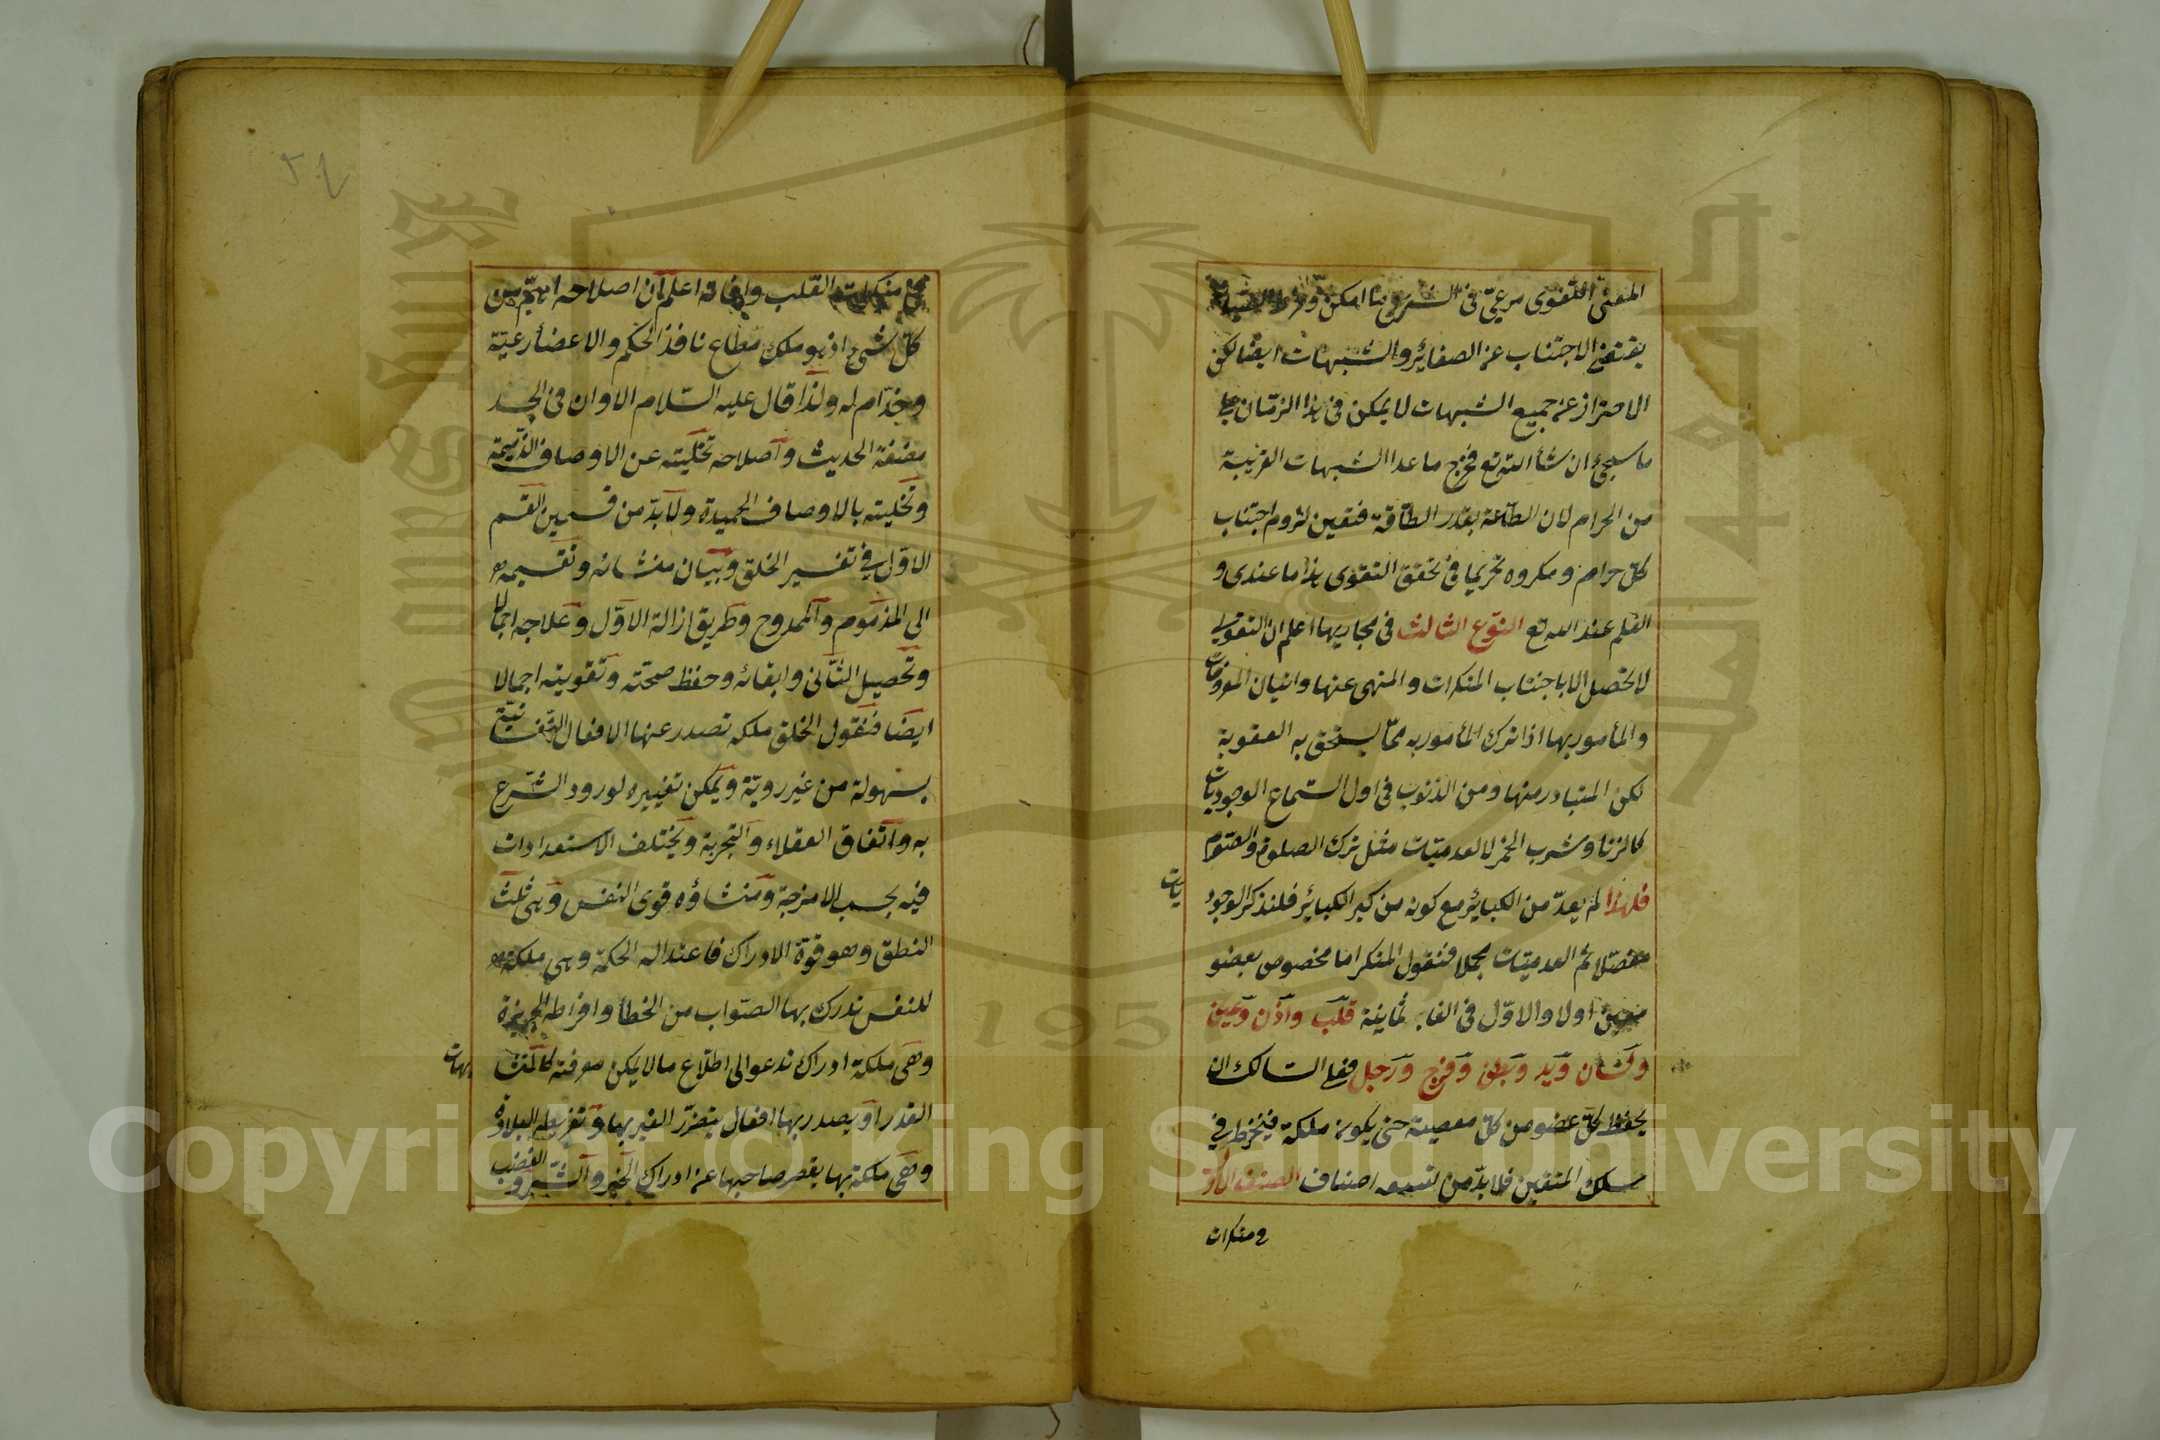 المعنى اللغوى مرعىّ فى الشرع ما امكن
يقتضى الاجتناب عن الصغائر والشبهات ايضا لكن
الاحتراز عن جميع الشبهات لا يمكن فى هذا الزمان على
ما سيجئ ان شاء الله تع فخرج ما عدا الشبهات القريبة
من الحرام لان الطاعة بقدر الطاقة فتعين لزوم اجتناب
كل حرام و مكروه تحريما فى تحقق التقوى هذا ما عندى و
العلم عند الله تع النوع الثالث فى مجاريها اعلم ان التقوى
لا تحصل الا باجتناب المنكرات و المنهى عنها واتيان المعروفات
والمأمور بها اذ ترك المأمور به مما يستحق به العقوبة
لكن المتبادر منها ومن الذنوب فى اول السماع الوجوديات
كالزنا وشرب الخمر لا العدميات مثل ترك الصلوة والصوم
فلهذا لم يعدّ من الكبائر مع كونه من كبر الكبائر فلنذكر الوجود
يات
مفصلا ثم العدميات مجملا فنقول المنكر اما مخصوص بعضو
اولا والاول فى الغا ثمانية قلب واذن وعين
ولسان ويد وبطن وفرج ورجل فعلى السالك ان
يحفظ كل عضو من كل معصية حتى يكون ملكة فينخرط فى
سلك المتقين فلا بدّ من تسعة اصناف الصنف الاوّ
فى منكرات
٢٤
منكرات القلب وافاته اعلم ان اصلاحه اهمّ من
كل شئ اذ هو ملك مطاع نافذ الحكم والاعضأ رعيّة
وخدّام له ولذا قال عليه السّلام الا وان فى الجسد
مضغة الحديث واصلاحه تخليته عن الاوصاف الذميمة
وتحليته بالاوصاف الحميدة ولا بدّ من قسمين القسم
الاوّل فى تفسير الخلق وبيان منشائه وتقسيمه
الى المذموم والممدوح وطريق ازالة الاوّل وعلاجه اجمالا
وتحصيل الثّانى وابقائه وحفظ صحته وتقويته اجمالا
ايضا فنقول الخلق ملكه تصدر عنها الافعال النّفسانيّة
بسهولة من غير رويّة ويمكن تغييره لورود الشّرع
به واتفاق العقلاء والتجربة ويختلف الاستعدادات
فيه بحسب الامزجة ومنشاؤه قوى النفس وهى ثلث
النطق وهو قوّة الادراك فاعتداله الحكمة وهى ملكة
للنفس تدرك بها الصّواب من الخطأ وافراطه الجربزة
وهى ملكة ادراك تدعو الى اطلاع ما لا يمكن معرفته كالمتشا
بهات
القدر او يصدر بها افعال يتضرّر الغير بها وتفريطه البلادة
وهى ملكة بها يقصر صاحبها عن ادراك الخير والشّر و الغضب
Copyright © King Saud University
1957